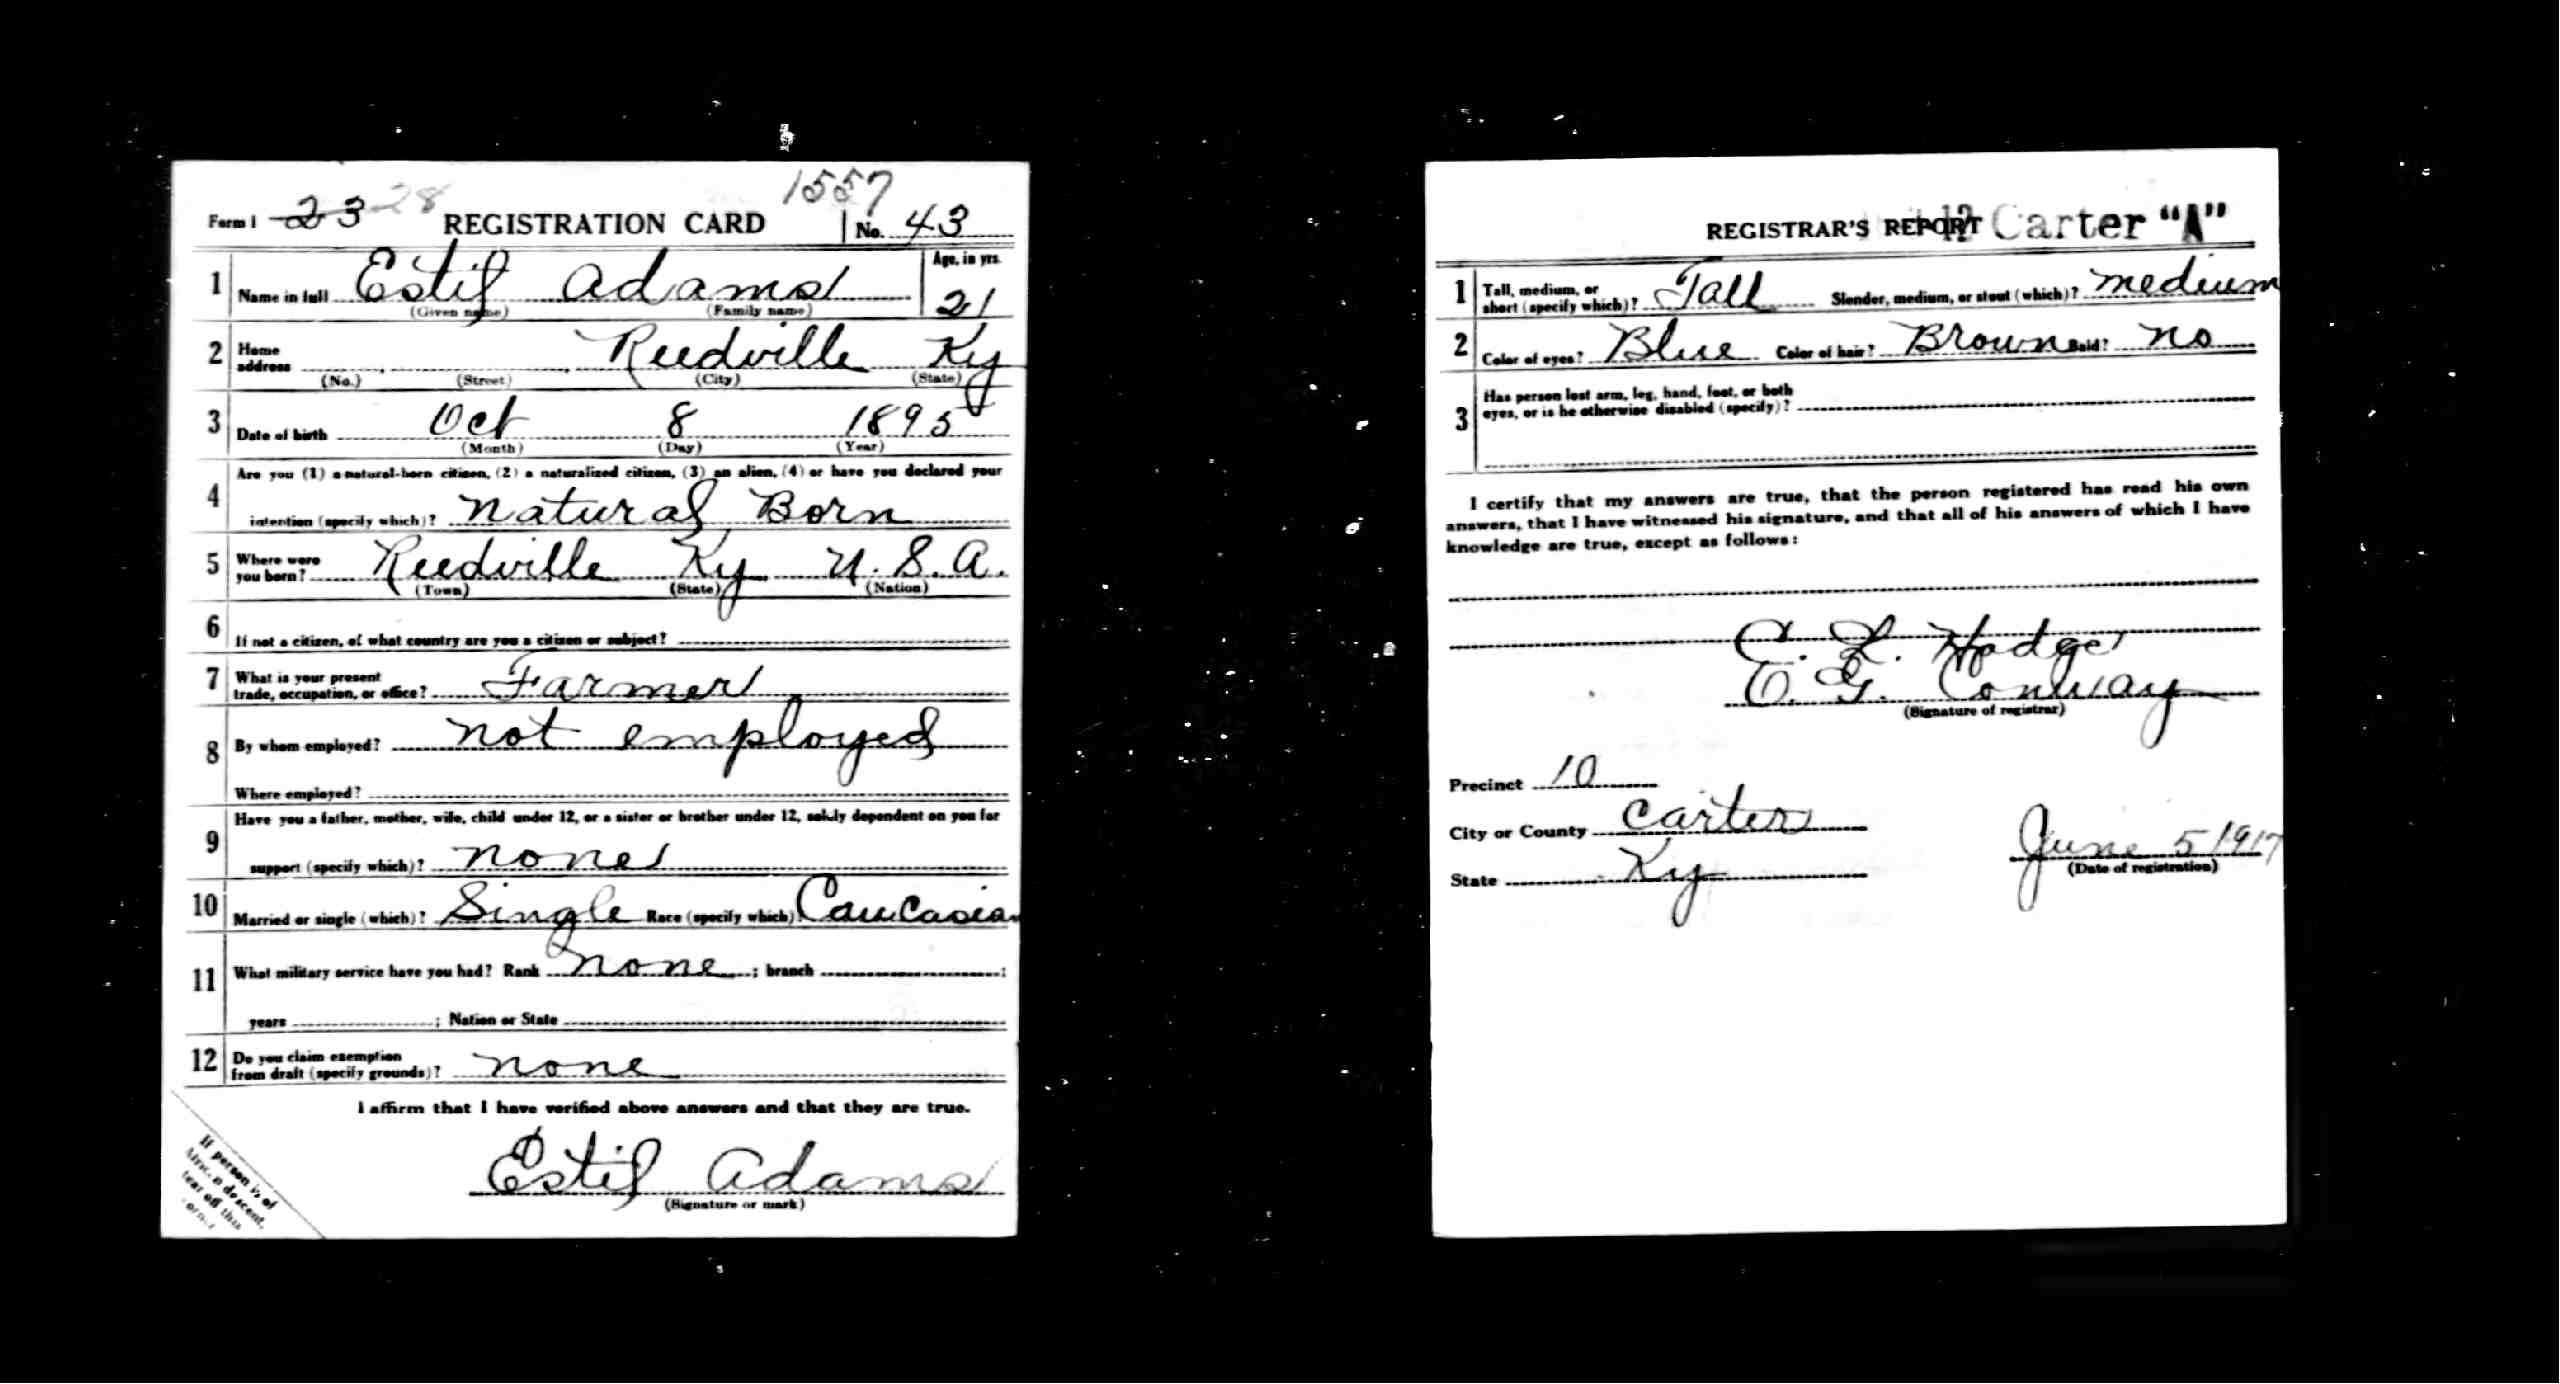 1557
Form 1 23 28 REGISTRATION CARD No. 43
1 Name in full Estil Adams Age, in yrs. 21
(Given name) (Family name)
2 Home address Reedville Ky
(No.) (Street) (City) (State)
3 Date of birth Oct 8 1895
(Month) (Day) (Year)
4 Are you (1) a natural-born citizen, (2) a naturalized citizen, (3) an alien, (4) or have you declared your
intention (specify which)? Natural Born
5 Where were you born? Reedville Ky U.S.A.
(Town) (State) (Nation)
6 If not a citizen, of what country are you a citizen or subject?
7 What is your present
trade, occupation, or office? Farmer
8 By whom employed? not employed
Where employed?
9 Have you a father, mother, wife, child under 12, or a sister or brother under 12, solely dependent on you for
support (specify which)? none
10 Married or single (which)? Single Race (specify which)? Caucasian
11 What military service have you had? Rank none ; branch ;
years ; Nation or State
12 Do you claim exemption
from draft (specify grounds)? none
I affirm that I have verified above answers and that they are true.
Estil Adams
(Signature or mark)
If person is of
descent,
tear off this
REGISTRAR'S REPORT Carter "A"
1 Tall, medium, or
short (specify which)? Tall Slender, medium, or stout (which)? medium
2 Color of eyes? Blue Color of hair? Brown Bald? No
3 Has person lost arm, leg, hand, foot, or both
eyes, or is he otherwise disabled (specify)?
I certify that my answers are true, that the person registered has read his own
answers, that I have witnessed his signature, and that all of his answers of which I have
knowledge are true, except as follows:
E. G. Conway
(Signature of registrar)
Precinct 10
City or County Carter
State Ky June 5 1917
(Date of registration)